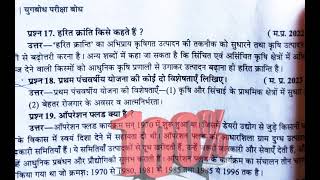 युगबोध परीक्षा बोध
प्रश्न 17. हरित क्रांति किसे कहते हैं ? ( म.प्र. 2022
उत्तर—'हरित क्रान्ति' का अभिप्राय कृषिगत उत्पादन की तकनीक को सुधारने तथा कृषि उत्पादन
से बढ़ोत्तरी करना है। अन्य शब्दों में कहा जा सकता है कि सिंचित एवं असिंचित कृषि क्षेत्रों में अधिक
देने वाली किस्मों को आधुनिक कृषि प्रणाली से उगाकर उत्पादन बढ़ाना ही हरित क्रान्ति है।
प्रश्न 18. प्रथम पंचवर्षीय योजना की कोई दो विशेषताएँ लिखिए। ( म.प्र. 2023
उत्तर—प्रथम पंचवर्षीय योजना की विशेषताएँ—(1) कृषि और सिंचाई के प्राथमिक क्षेत्रों में सुधार
(2) बेहतर रोजगार के अवसर व आत्मनिर्भरता।
प्रश्न 19. ऑपरेशन फ्लड क्या है
उत्तर—ऑपरेशन फ्लड 1970 में डेयरी उद्योग से जुड़े किसानों
के विकास में स्वयं दिशा देने में सहायता दी। ग्राम दुग्ध उत्पादक
सहकारी समितियाँ हैं। ये समितियाँ उत्पादकों से दूध और सेवाएँ उपलब्ध करती हैं, सदस्यों
आधुनिक प्रबंधन और प्रौद्योगिकी सुलभ कराती कार्यक्रम का संचालन तीन चरणों
किया गया था जो क्रमशः 1970 से 1980, 1981 से 1985 तथा 1985 से 1996 तक है।